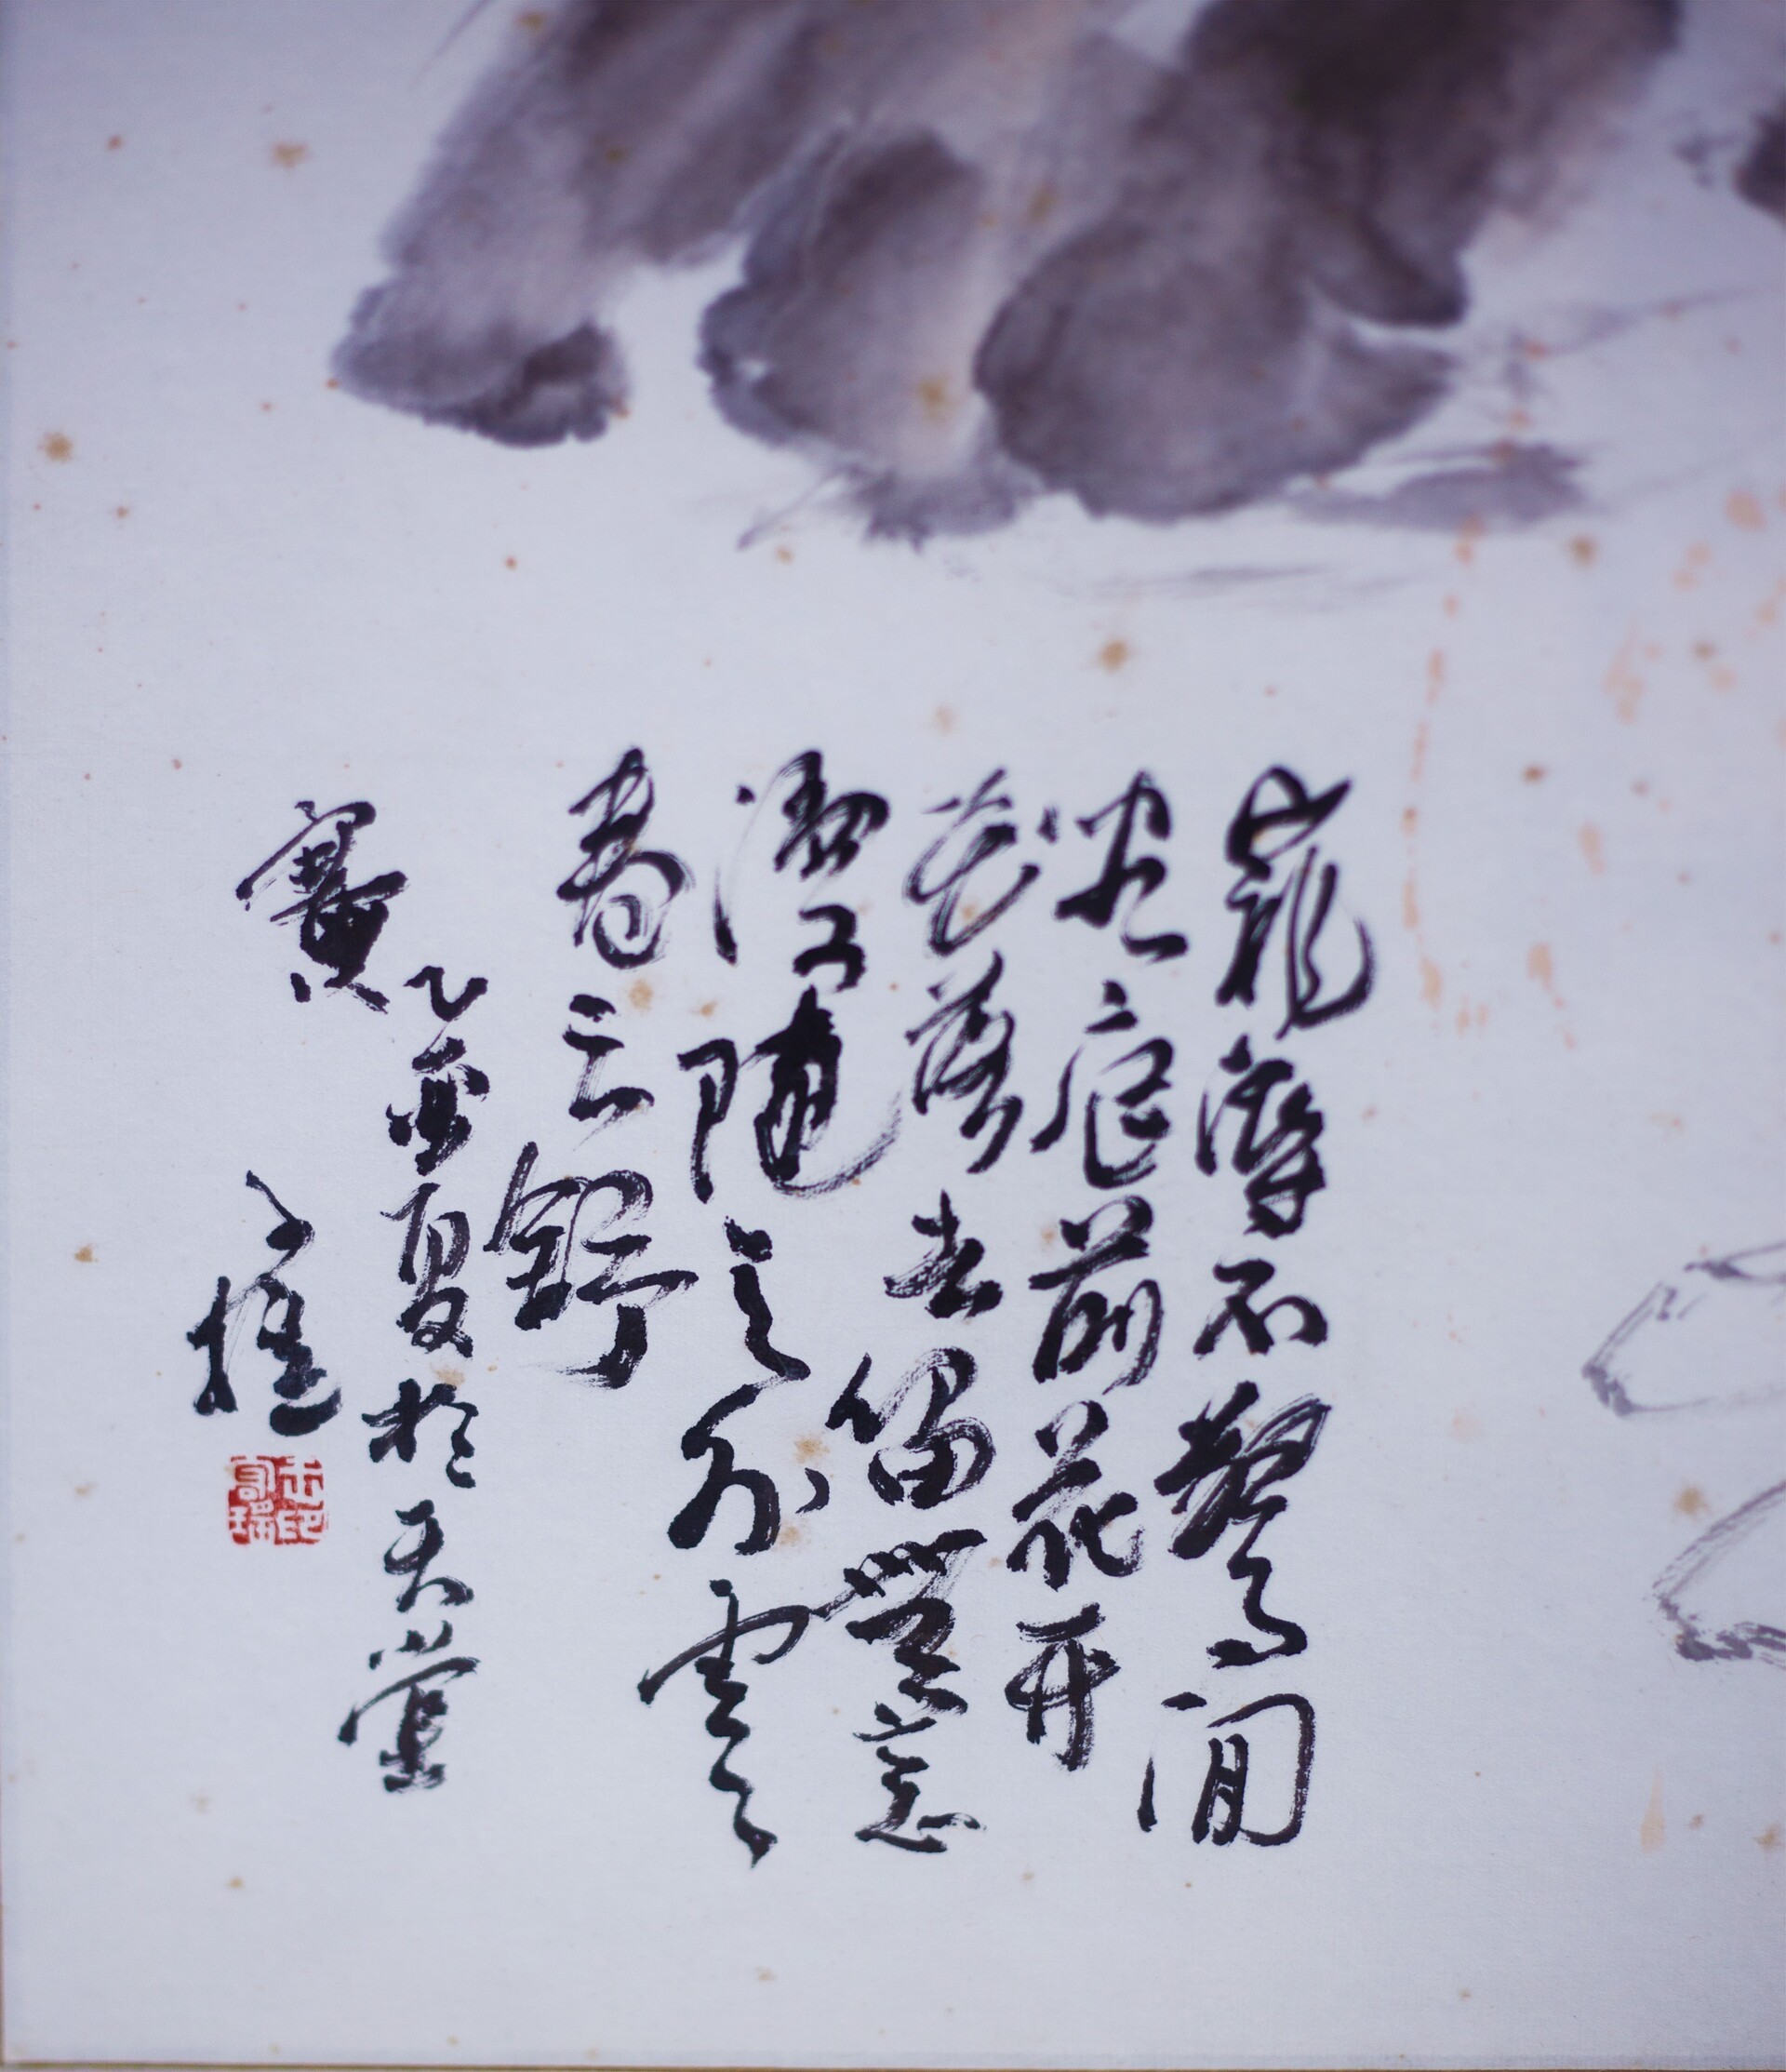 寵辱不驚閒
看庭前花开
花落去留無意
漫隨天外雲
卷云舒
乙亥夏於天